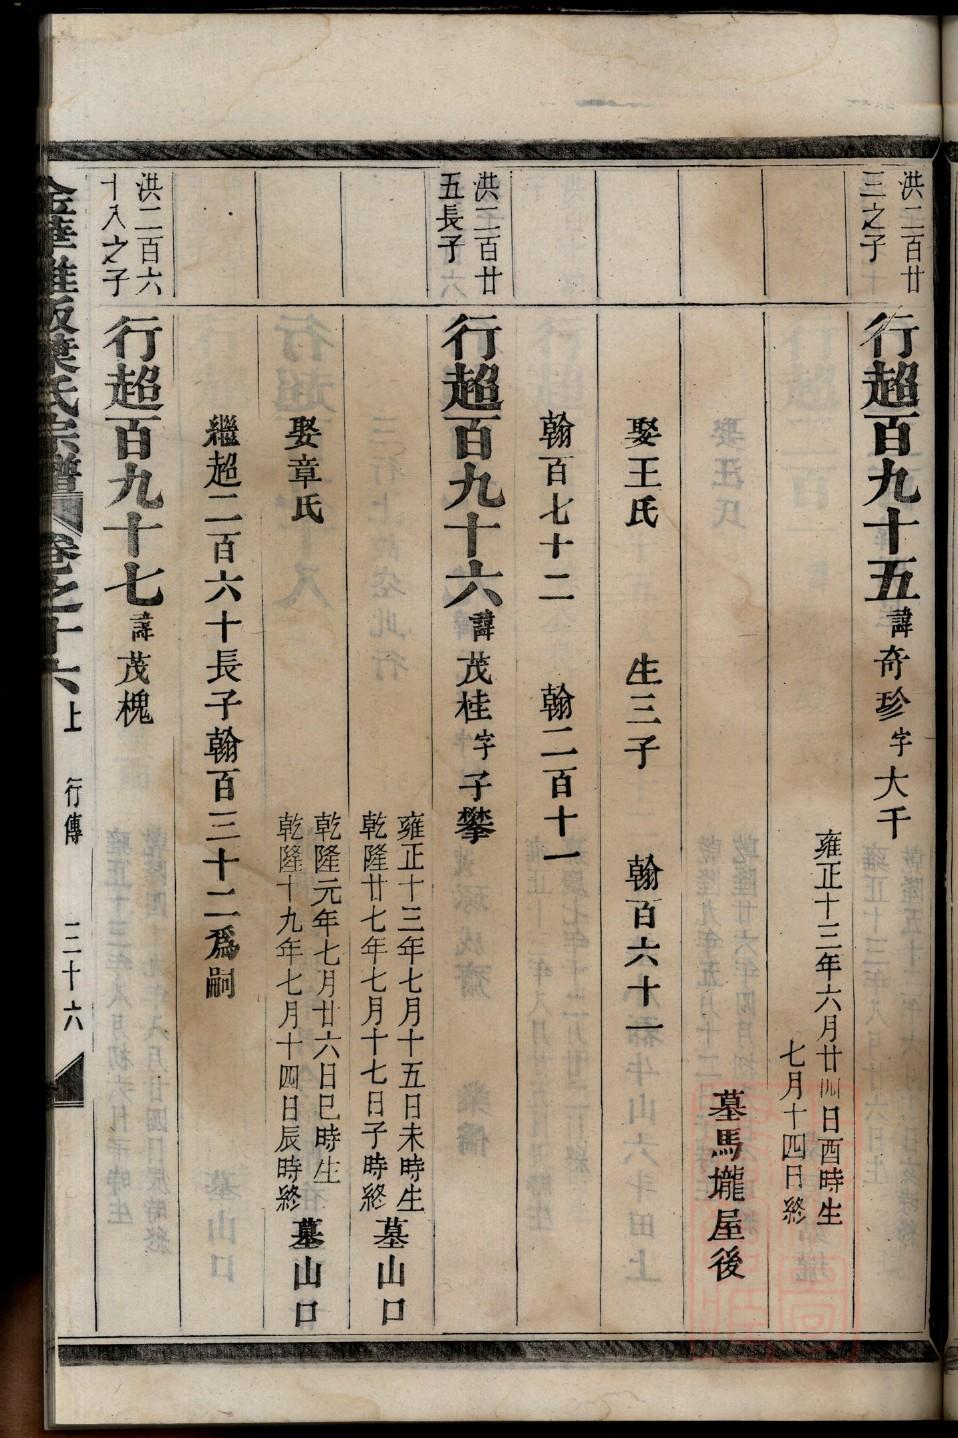 洪二百廿
三之子
行超百九十五諱奇珍字大千
雍正十三年六月廿四日酉時生
七月十四日終
墓馬壠屋後
娶王氏 生三子 翰百六十一
翰百七十二 翰二百十一
洪二百廿
五長子
行超百九十六諱茂桂字子攀
雍正十三年七月十五日未時生
乾隆廿七年七月十七日子時終
墓山口
娶章氏
乾隆元年七月廿六日巳時生
乾隆十九年七月十四日辰時終
墓山口
繼超二百六十長子翰百三十二爲嗣
洪二百六
十八之子
行超百九十七諱茂槐
金華雅畈葉氏宗譜 卷之十六上 行傳 三十六